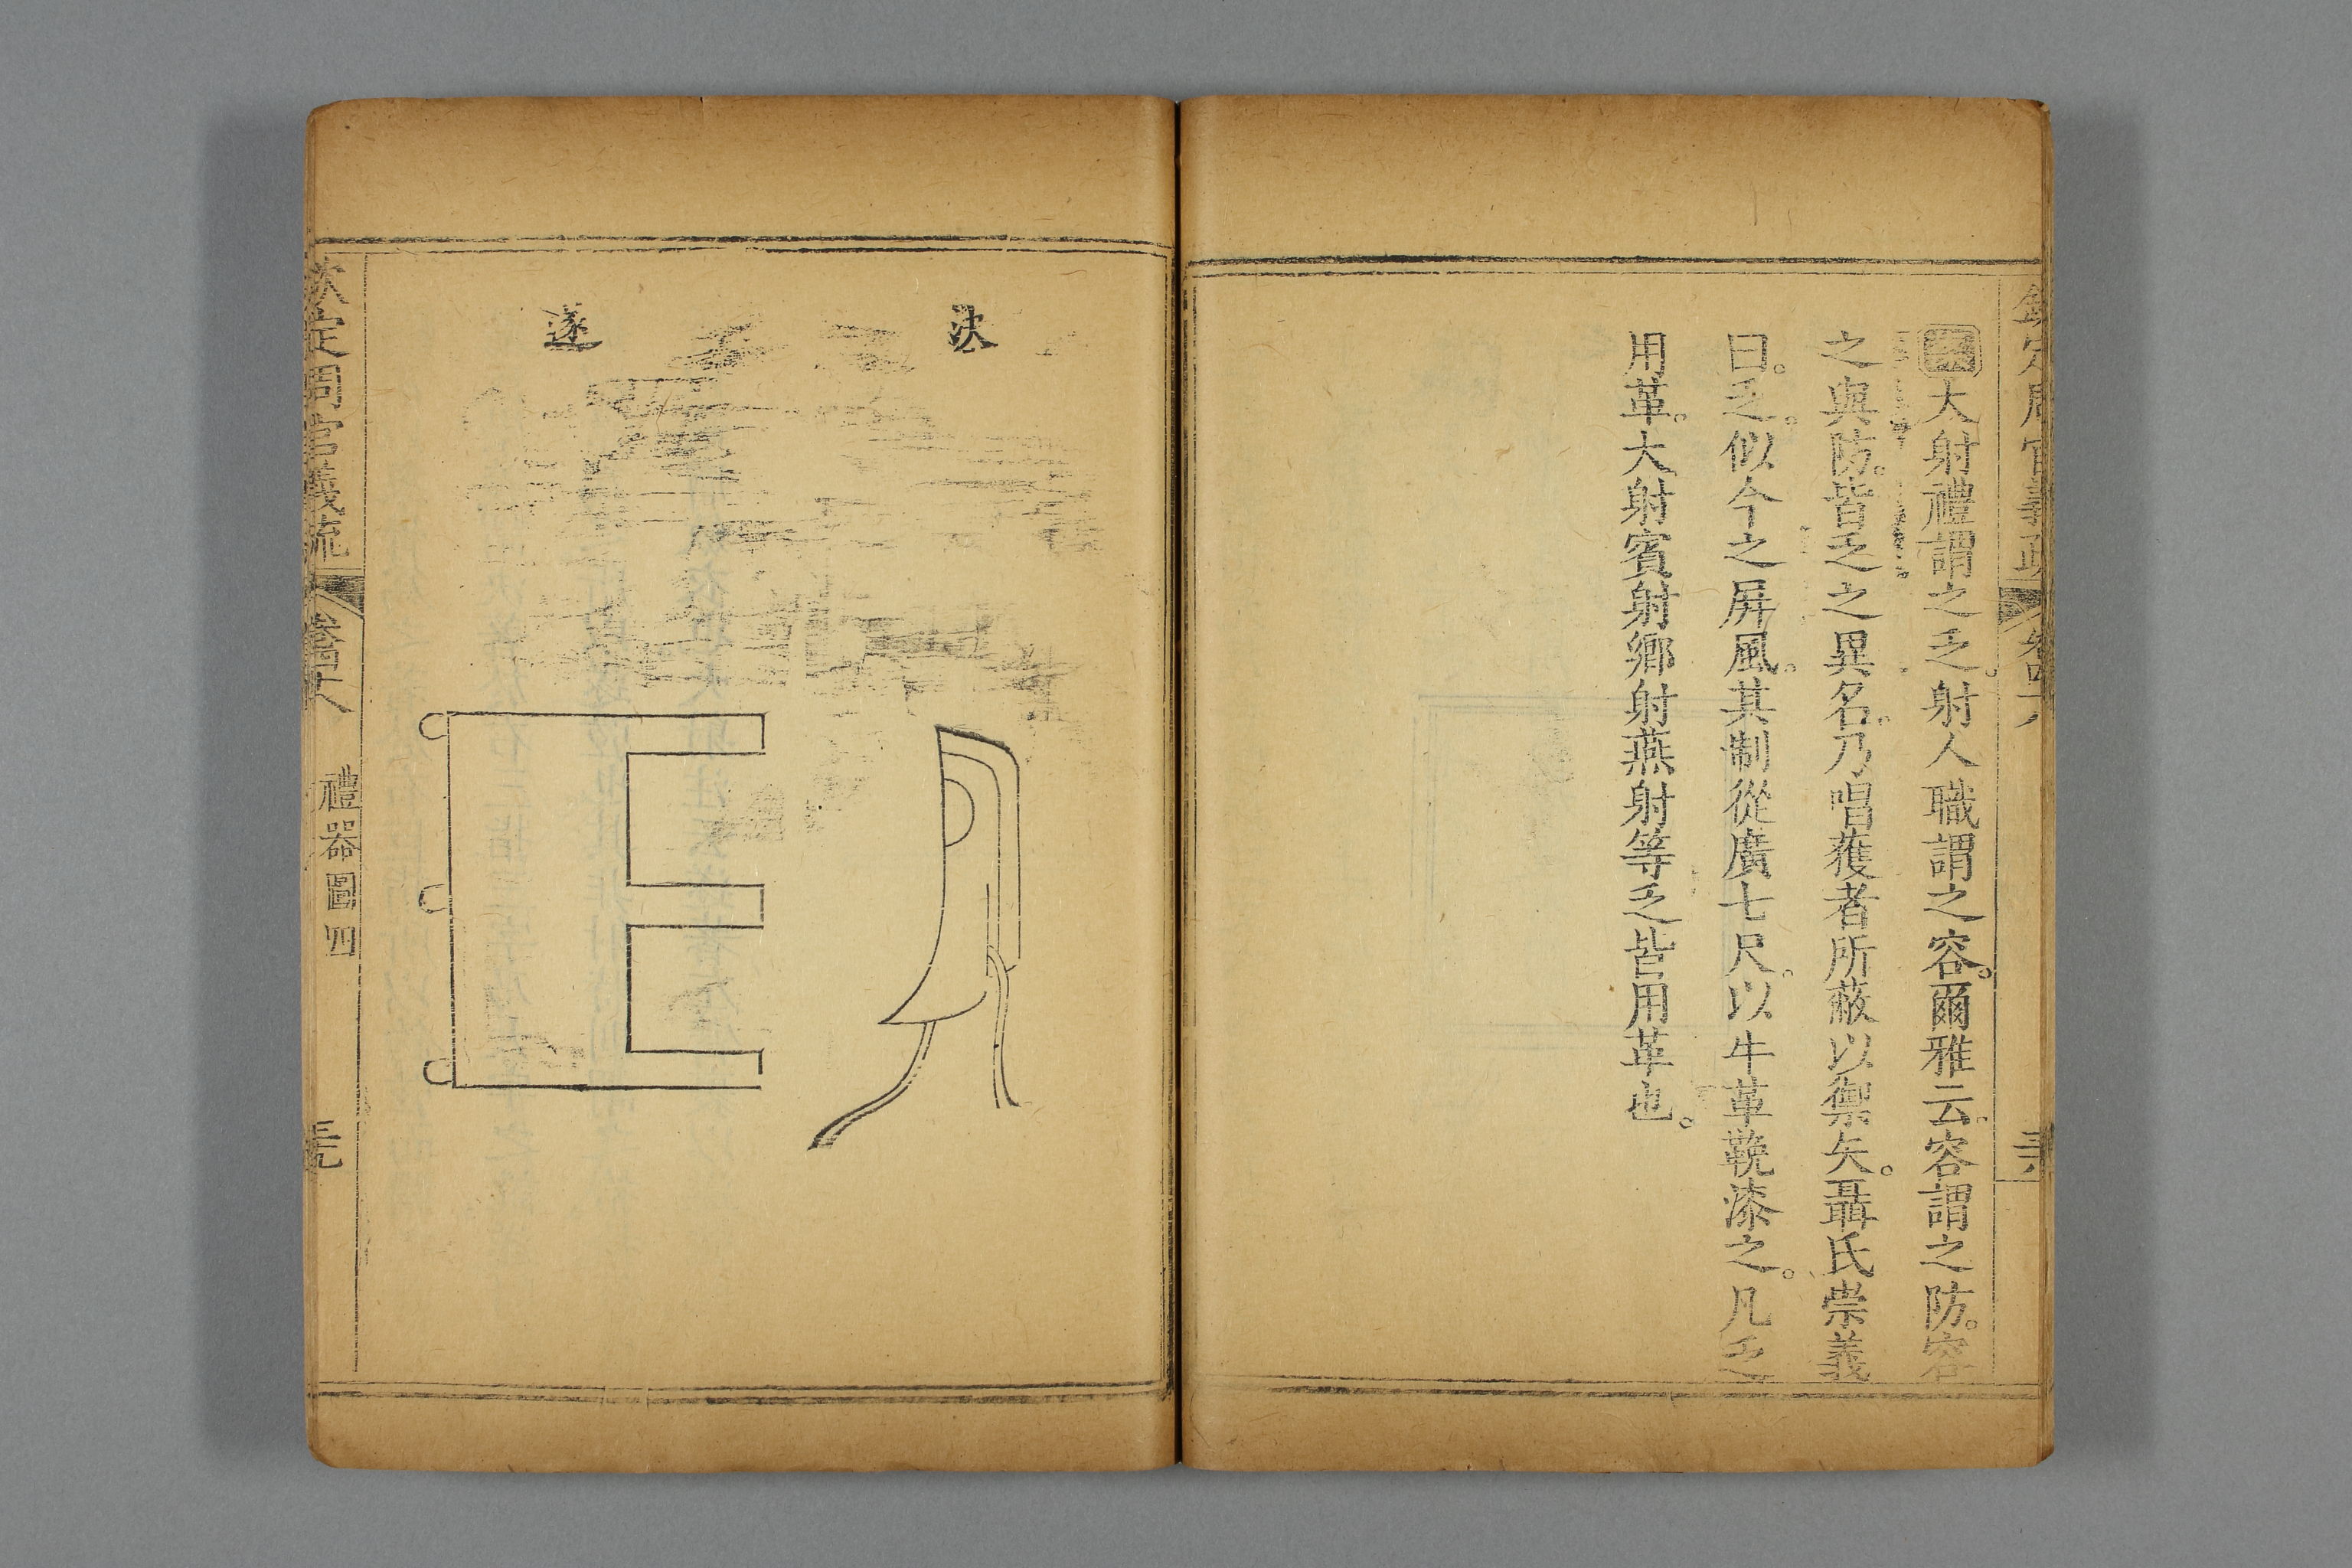 大射禮謂之乏。射人職謂之容。爾雅云。容謂之防。容
之與防。皆乏之異名。乃唱獲者所蔽以禦矢。聶氏崇義
曰。乏。似今之屛風。其制從廣七尺。以牛革鞔漆之。凡乏
用革。大射賓射鄉射燕射等乏皆用革也。
決
遂
欽定周官義疏
卷四十八
禮器圖四